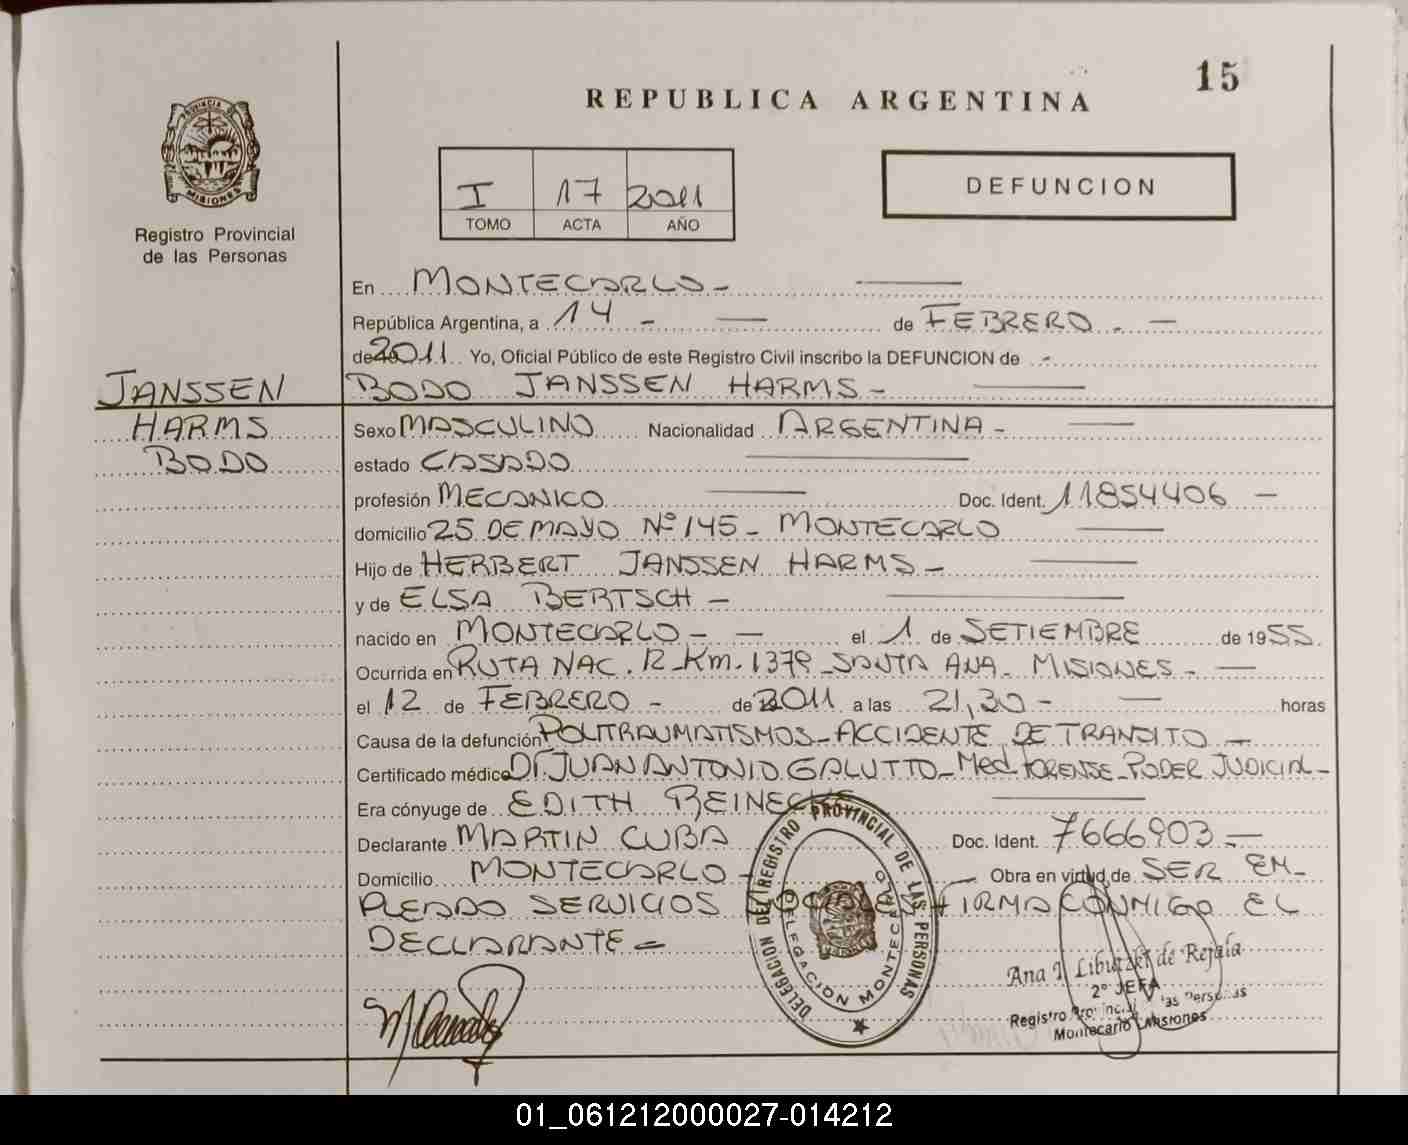 15
REPUBLICA ARGENTINA
PROVINCIA DE
MISIONES
Registro Provincial
de las Personas
I 17 2011
TOMO ACTA AÑO
DEFUNCION
En MONTECARLO -
República Argentina, a 14 - de FEBRERO. -
de 2011 Yo, Oficial Público de este Registro Civil inscribo la DEFUNCION de -
JANSSEN BODO JANSSEN HARMS -
HARMS Sexo MASCULINO Nacionalidad ARGENTINA -
BODO estado CASADO
profesión MECANICO Doc. Ident. 11854406 -
domicilio 25 DE MAYO Nº 145 - MONTECARLO
Hijo de HERBERT JANSSEN HARMS -
y de ELSA BERTSCH -
nacido en MONTECARLO - - el 1 de SETIEMBRE de 1955
Ocurrida en RUTA NAC. 12 - Km. 1379 - SANTA ANA - MISIONES -
el 12 de FEBRERO - de 2011 a las 21,30 - horas
Causa de la defunción POLITRAUMATISMOS - ACCIDENTE DE TRANSITO -
Certificado médico Dr JUAN ANTONIO GALUTTO - Med FORENSE - PODER JUDICIAL -
Era cónyuge de EDITH REINECKE
Declarante MARTIN CUBA Doc. Ident. 7666903 -
Domicilio MONTECARLO - Obra en virtud de SER EM-
PLEADO SERVICIOS SOCIALES FIRMA CONMIGO EL
DECLARANTE =
DELEGACION DEL REGISTRO PROVINCIAL DE LAS PERSONAS
DELEGACION MONTECARLO
Ana I. Libutzki de Rejala
2º JEFA
Registro Provincial las Personas
Montecarlo Misiones
01_061212000027-014212